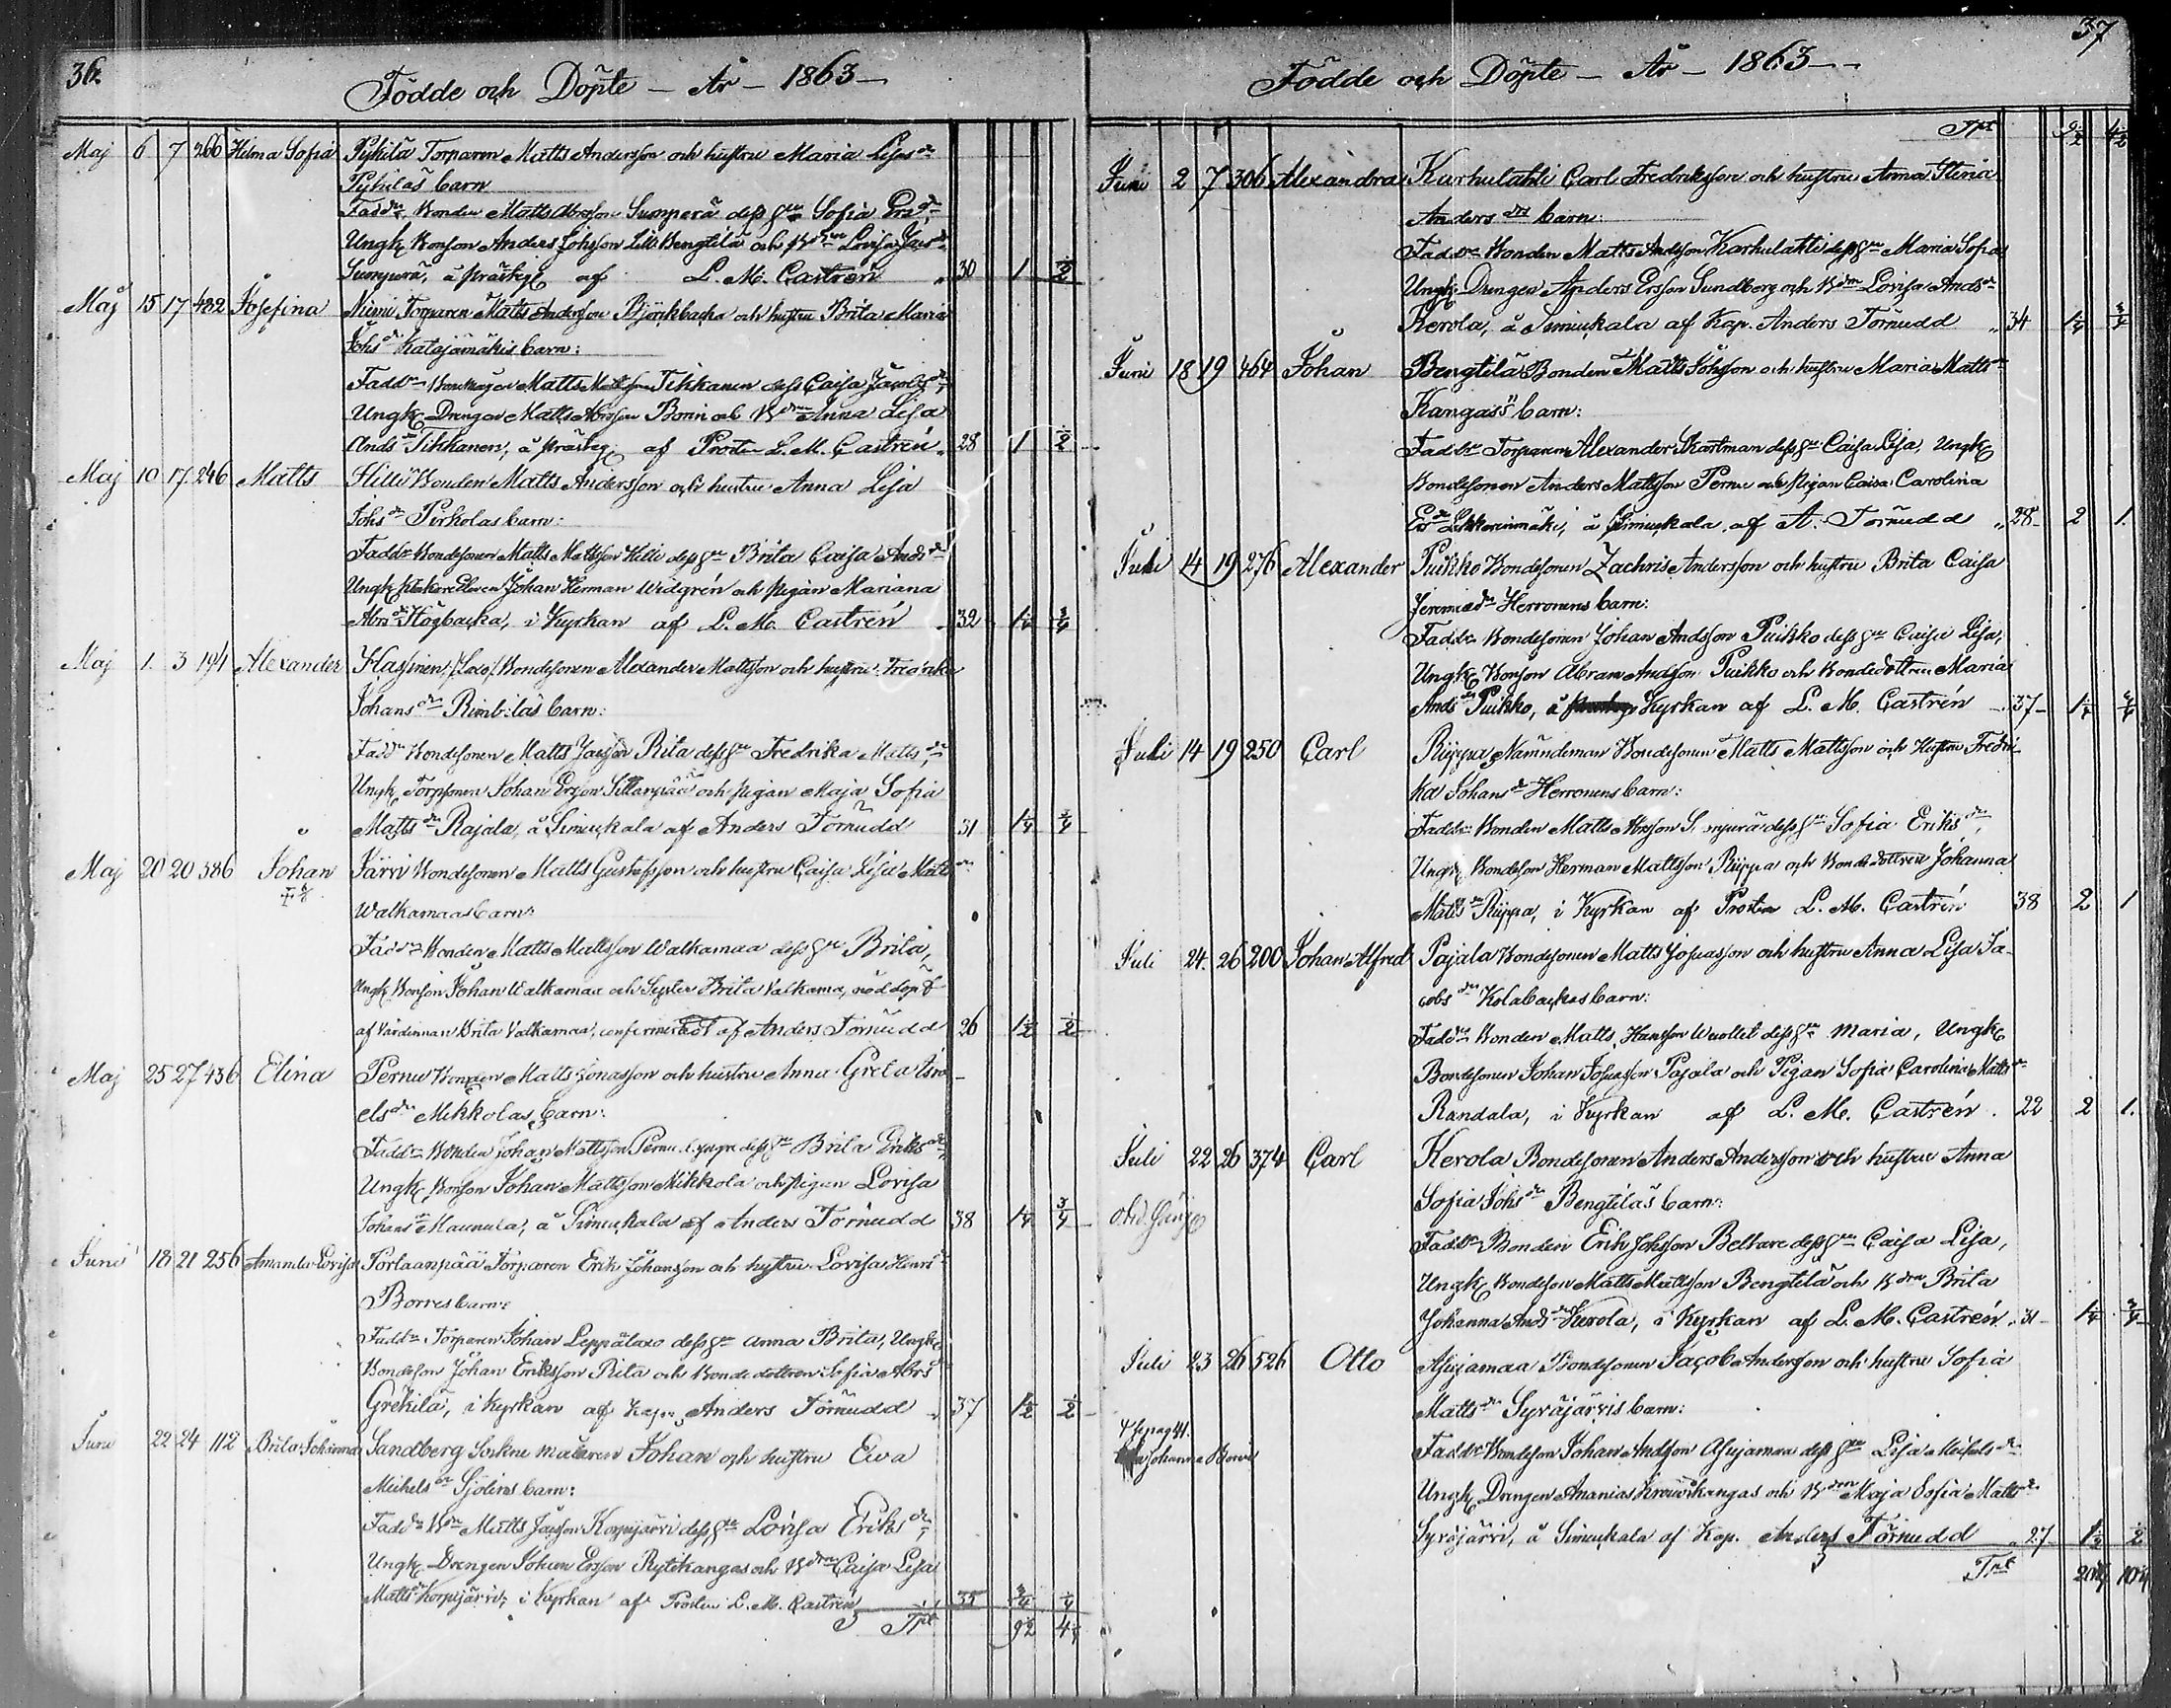 36.
Födde och Döpte – År – 1863 –
Maj 6 7 266 Hilma Sofia Pyhilä Torparen Matts Andersson och hustru Maria Lisas dr
Pyhiläs barn
Fadd:r Bonden Matts Abrsson Sumperä dess h:u Sofia Ers dr
Ungk. Bonson Anders Johsson Lill Bengtilä och B dr Lovisa Jacs dr
Sumperä, å prästg. af L. M. Castrén 30 1 1/2
Maj 15 17 482 Josefina Niemi Torparen Matts Andersson Björkbacka och hustru Brita Maria
Johs dr Katajamäkis barn:
Fadd:r Matts Tikkanen dess Caisa Jacobs dr
Ungk. Drengen Matts Abrsson Bonin och B dr Anna Lisa
Ands dr Tikkanen, å prästg. af Prosten L. M. Castrén 28 1 1/2
Maj 10 17 246 Matts Hilli Bonden Matts Andersson och hustru Anna Lisa
Johs dr Pirkolas barn:
Fadd:r Bondesonen Matts Mattsson Hilli dess h:u Brita Caisa Ands dr
Ungk. Johan Herman Widgrén och pigan Mariana
Abrs dr Högbacka, i Kyrkan af L. M. Castrén 32 1 1/4 3/4
Maj 1. 3 194 Alexander Hassinen /Laxo/ Bondesonen Alexander Mattsson och hustru Fredrika
Johans dr Rimbiläs barn:
Fadd:r Bondesonen Matts Jacsson Rita dess h:u Fredrika Matts dr
Ungk. Torpsonen Johan Ersson Sillanpää och pigan Maja Sofia
Matts dr Rajala, å Simukala af Anders Törnudd 31 1 1/4 3/4
Maj 20 20 386 Johan Järvi Bondesonen Matts Gustafsson och hustru Caisa Lisa Matts dr
Walkamaas barn:
Fadd:r Bonden Matts Mattsson Walkamaa dess h:u Brita,
Ungk. Bonson Johan Walkamaa och Syster Brita Valkama, nöddöpt
af Värdinnan Brita Valkamaa, confirmeradt af Anders Törnudd 26 1 1/2 1/2
Maj 25 27 436 Elina Pernu Bonden Matts Jonasson och hustru Anna Greta Isra-
els dr Mikkolas barn:
Fadd:r Bonden Johan Mattsson Pernu dess h:u Brita Eriks dr
Ungk. Bonson Johan Mattsson Mikkola och pigan Lovisa
Johans dr Maunula, å Simukala af Anders Törnudd 38 1 1/4 3/4
Juni 18 21 256 Amanda Lovisa Portaanpää Torparen Erik Johansson och hustru Lovisa Henri-
Borres barn:
Fadd:r Torparen Johan Leppälaxo dess h:u Anna Brita, Ungk.
Bondeson Johan Eriksson Rita och Bondedottren Sofia Abrs dr
Grekilä, i Kyrkan af Kapn Anders Törnudd 37 1 1/2 1/2
Juni 22 24 112 Brita Johanna Sandberg Sockne målaren Johan och hustru Ewa
Michels dr Sjölins barn:
Fadd:r Bn Matts Jacsson Korpijärvi dess h:u Lovisa Eriks dr
Ungk. Drengen Johan Ersson Rytikangas och B dr Caisa Lisa
Matts dr Korpijärvi, i Kyrkan af Prosten L. M. Castrén 35 3/4 1/4
Tpt 9 1/2 4 1/4
37
Födde och Döpte – År – 1863 –
Tpt 9 1/2
Juni 2 7 306 Alexandra Karhulahti Carl Fredriksson och hustru Anna Stina
Anders drs barn:
Fadd:r Bonden Matts Andsson Karhulahti dess h:u Maria Sofia
Ungk. Drengen Anders Ersson Sundberg och B dr Lovisa Ands dr
Kerola, å Simukala af Kap. Anders Törnudd 34 1 1/4 3/4
Juni 18 19 464 Johan Bengtilä Bonden Matts Johsson och hustru Maria Matts dr
Kangas's barn:
Fadd:r Torparen Alexander Skartman dess h:u Caisa Lisa, Ungk.
Bondesonen Anders Mattsson Pernu och pigan Caisa Carolina
Ers dr å Simukala af A. Törnudd 28 2 1.
Juli 14 19 276 Alexander Puikko Bondesonen Zachris Andersson och hustru Brita Caisa
Jeremiæ dr Herronens barn:
Fadd:r Bondesonen Johan Andsson Puikko dess h:u Caisa Lisa,
Ungk. Bonson Abram Andsson Puikko och Bondedottren Maria
Ands dr Puikko, å Kyrkan af L. M. Castrén 37 1 1/4 3/4
Juli 14 19 250 Carl Ruppa, Nämndeman Bondesonen Matts Mattsson och hustru Fredri-
ka Johans dr Herronens barn:
Fadd:r Bonden Matts Abrsson Sumperä dess h:u Sofia Eriks dr,
Ungk. Bondeson Herman Mattsson Ruppa och Bondedottren Johanna
Matts dr Ruppa, i Kyrkan af Prosten L. M. Castrén 38 2 1
Juli 24. 26 200 Johan Alfred Pajala Bondesonen Matts Josuasson och hustru Anna Lisa Ja-
cobs dr Kolabackas barn:
Fadd:r Bonden Matts Hansson Wuollet dess h:u Maria, Ungk.
Bondesonen Johan Josuasson Pajala och Pigan Sofia Carolina Matts dr
Randala, i Kyrkan af L. M. Castrén. 22 2 1.
Juli 22 26 374 Carl Kerola Bondesonen Anders Andersson och hustru Anna
Sofia Johs dr Bengtiläs barn:
Fadd:r Bonden Erik Johsson Beltare dess h:u Caisa Lisa,
Ungk. Bondeson Matts Mattsson Bengtilä och B dr Brita
Johanna Ands dr Kerola, i Kyrkan af L. M. Castrén 31 1 1/4 3/4
Juli 23 26 526 Otto Asujamaa Bondesonen Jacob Andersson och hustru Sofia
Matts dr Syväjärvis barn:
Fadd:r Bondeson Johan Andsson Asujamaa dess h:u Lisa Michels dr
Johanna
Ungk. Drengen Ananias och B dr Maja Sofia Matts dr
Syväjärvi, å Simukala af Kap. Anders Törnudd 27 1 1/2 1/2
Tpt